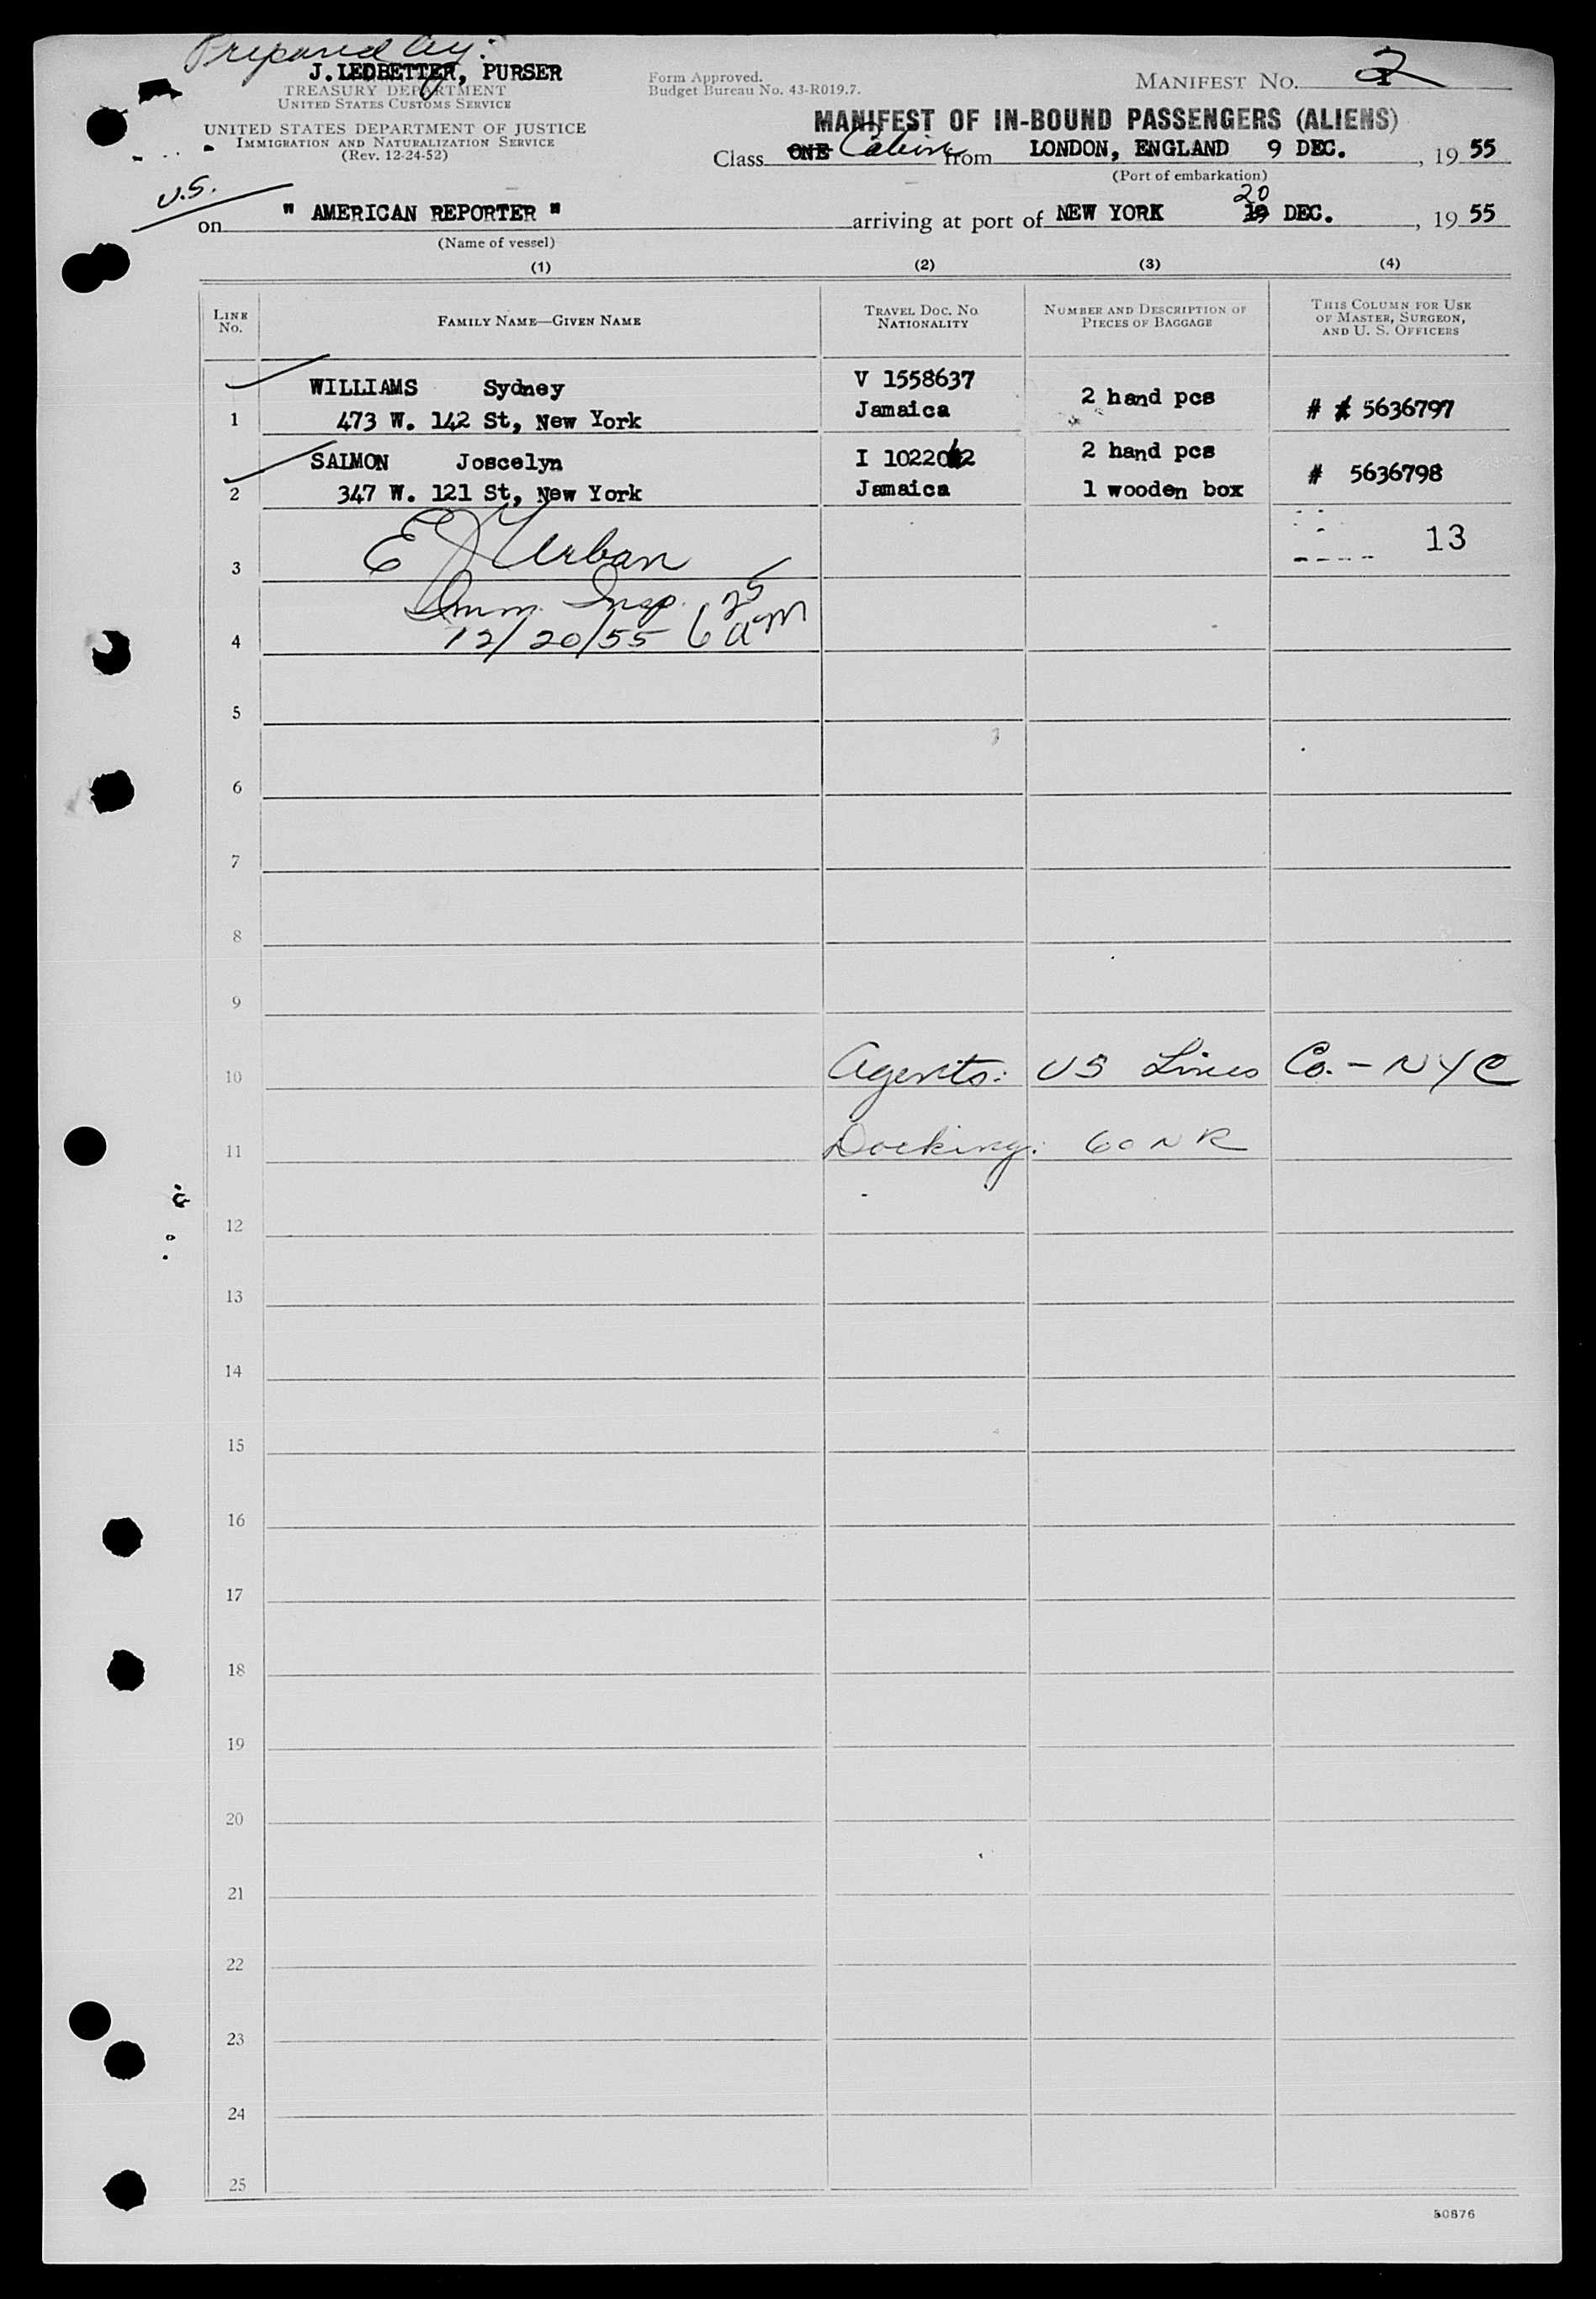 Prepared by:
J. LEDBETTER, PURSER
TREASURY DEPARTMENT
UNITED STATES CUSTOMS SERVICE
UNITED STATES DEPARTMENT OF JUSTICE
IMMIGRATION AND NATURALIZATION SERVICE
(Rev. 12-24-52)
Form Approved.
Budget Bureau No. 43-R019.7.
MANIFEST NO. 2
MANIFEST OF IN-BOUND PASSENGERS (ALIENS)
Class ONE Cabin from LONDON, ENGLAND 9 DEC., 19 55
(Port of embarkation)
U.S.
on " AMERICAN REPORTER " arriving at port of NEW YORK 19 20 DEC., 19 55
(Name of vessel)
(1) (2) (3) (4)
LINE NO. FAMILY NAME—GIVEN NAME TRAVEL DOC. NO. NATIONALITY NUMBER AND DESCRIPTION OF PIECES OF BAGGAGE THIS COLUMN FOR USE OF MASTER, SURGEON, AND U. S. OFFICERS
WILLIAMS Sydney V 1558637 2 hand pcs # # 5636797
1 473 W. 142 St, New York Jamaica
SALMON Joscelyn I 2 hand pcs # 5636798
2 347 W. 121 St, New York Jamaica 1 wooden box
3 E J Urban 13
Imm. Insp. 6 25 am
4 12/20/55
5
6
7
8
9
10 Agents: US Lines Co. - NYC
11 Docking: 60 NR
12
13
14
15
16
17
18
19
20
21
22
23
24
25
50876